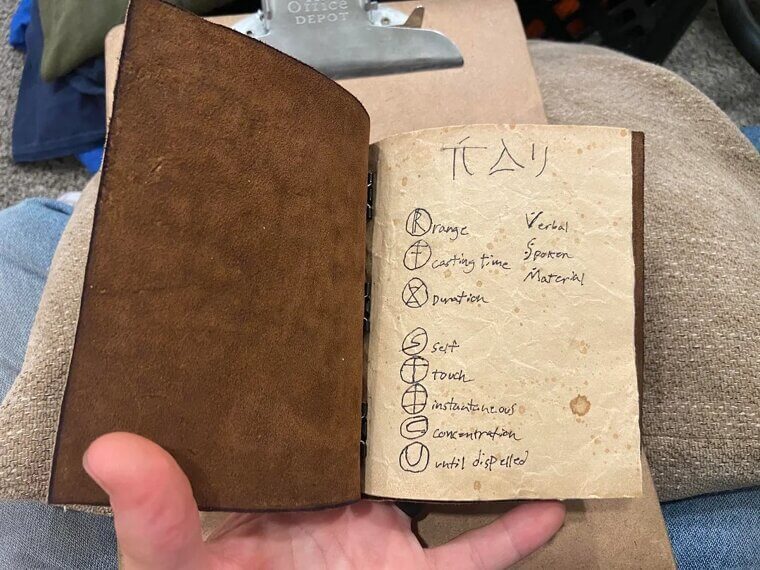 Office
DEPOT
R range
casting time
Duration
S self
touch
instantaneous
C concentration
U until dispelled
Verbal
Spoken
Material